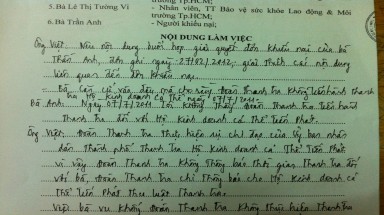 3.Bà Lê Thị Tường Vi - Nhân viên, TT Bảo vệ sức khỏe Lao động & Môi
trường Tp.HCM;
5.Bà Trần Anh - Người khiếu nại;
NỘI DUNG LÀM VIỆC
Ông Việt: Nêu nội dung buổi họp giải quyết đơn khiếu nại của bà
Trần Anh, đơn ghi ngày 27/02/2012, giải thích các nội dung
liên quan đến đơn khiếu nại.
- Bà Anh: Đoàn Thanh tra không tiến hành thanh
tra Hộ kinh doanh cá thể ngày 07/7/2011.
Bà Anh: Ngày 07/7/2011 Đoàn Thanh tra tiến hành
Thanh tra đối với Hộ kinh doanh cá thể Tiến Phát.
Ông Việt: Đoàn Thanh tra thực hiện sự chỉ đạo của Ủy ban nhân
dân Thành phố Thanh tra Hộ kinh doanh cá Thể Tiến Phát
vì vậy Đoàn Thanh tra không thông báo thời gian Thanh tra đối
với bà, Đoàn Thanh tra chỉ thông báo cho Hộ kinh doanh cá
Thể Tiến Phát Thanh tra.
Việc bà không Đoàn Thanh tra không thực hiện Thanh tra